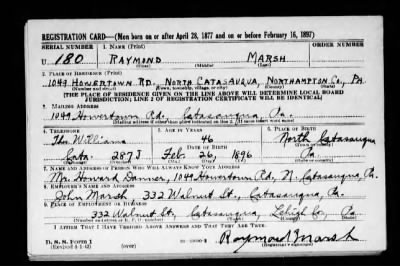 REGISTRATION CARD—(Men born on or after April 28, 1877 and on or before February 16, 1897)
SERIAL NUMBER 1. NAME (Print) ORDER NUMBER
U 180 RAYMOND MARSH
(First) (Middle) (Last)
2. PLACE OF RESIDENCE (Print)
1049 HOWERTOWN RD. NORTH CATASAUQUA, NORTHAMPTON CO., PA.
(Number and street) (Town, township, village, or city) (County) (State)
[THE PLACE OF RESIDENCE GIVEN ON THE LINE ABOVE WILL DETERMINE LOCAL BOARD
JURISDICTION; LINE 2 OF REGISTRATION CERTIFICATE WILL BE IDENTICAL]
3. MAILING ADDRESS
1049 Howertown Rd., Catasauqua, Pa.
[Mailing address if other than place indicated on line 2. If same insert word same]
4. TELEPHONE 5. AGE IN YEARS 6. PLACE OF BIRTH
46 North Catasauqua
DATE OF BIRTH
Cata. 287J Feb 26, 1896 Pa.
7. NAME AND ADDRESS OF PERSON WHO WILL ALWAYS KNOW YOUR ADDRESS
Mr. Howard Danner, 1049 Howertown Rd., N. Catasauqua, Pa.
8. EMPLOYER'S NAME AND ADDRESS
John Marsh 332 Walnut St., Catasauqua, Pa.
9. PLACE OF EMPLOYMENT OR BUSINESS
332 Walnut St., Catasauqua, Lehigh Co., Pa
(Number and street or R. F. D. number) (Town) (County) (State)
I AFFIRM THAT I HAVE VERIFIED ABOVE ANSWERS AND THAT THEY ARE TRUE.
D. S. S. FORM 1
(Revised 4-1-42) (over) Raymond Marsh
(Registrant's signature)